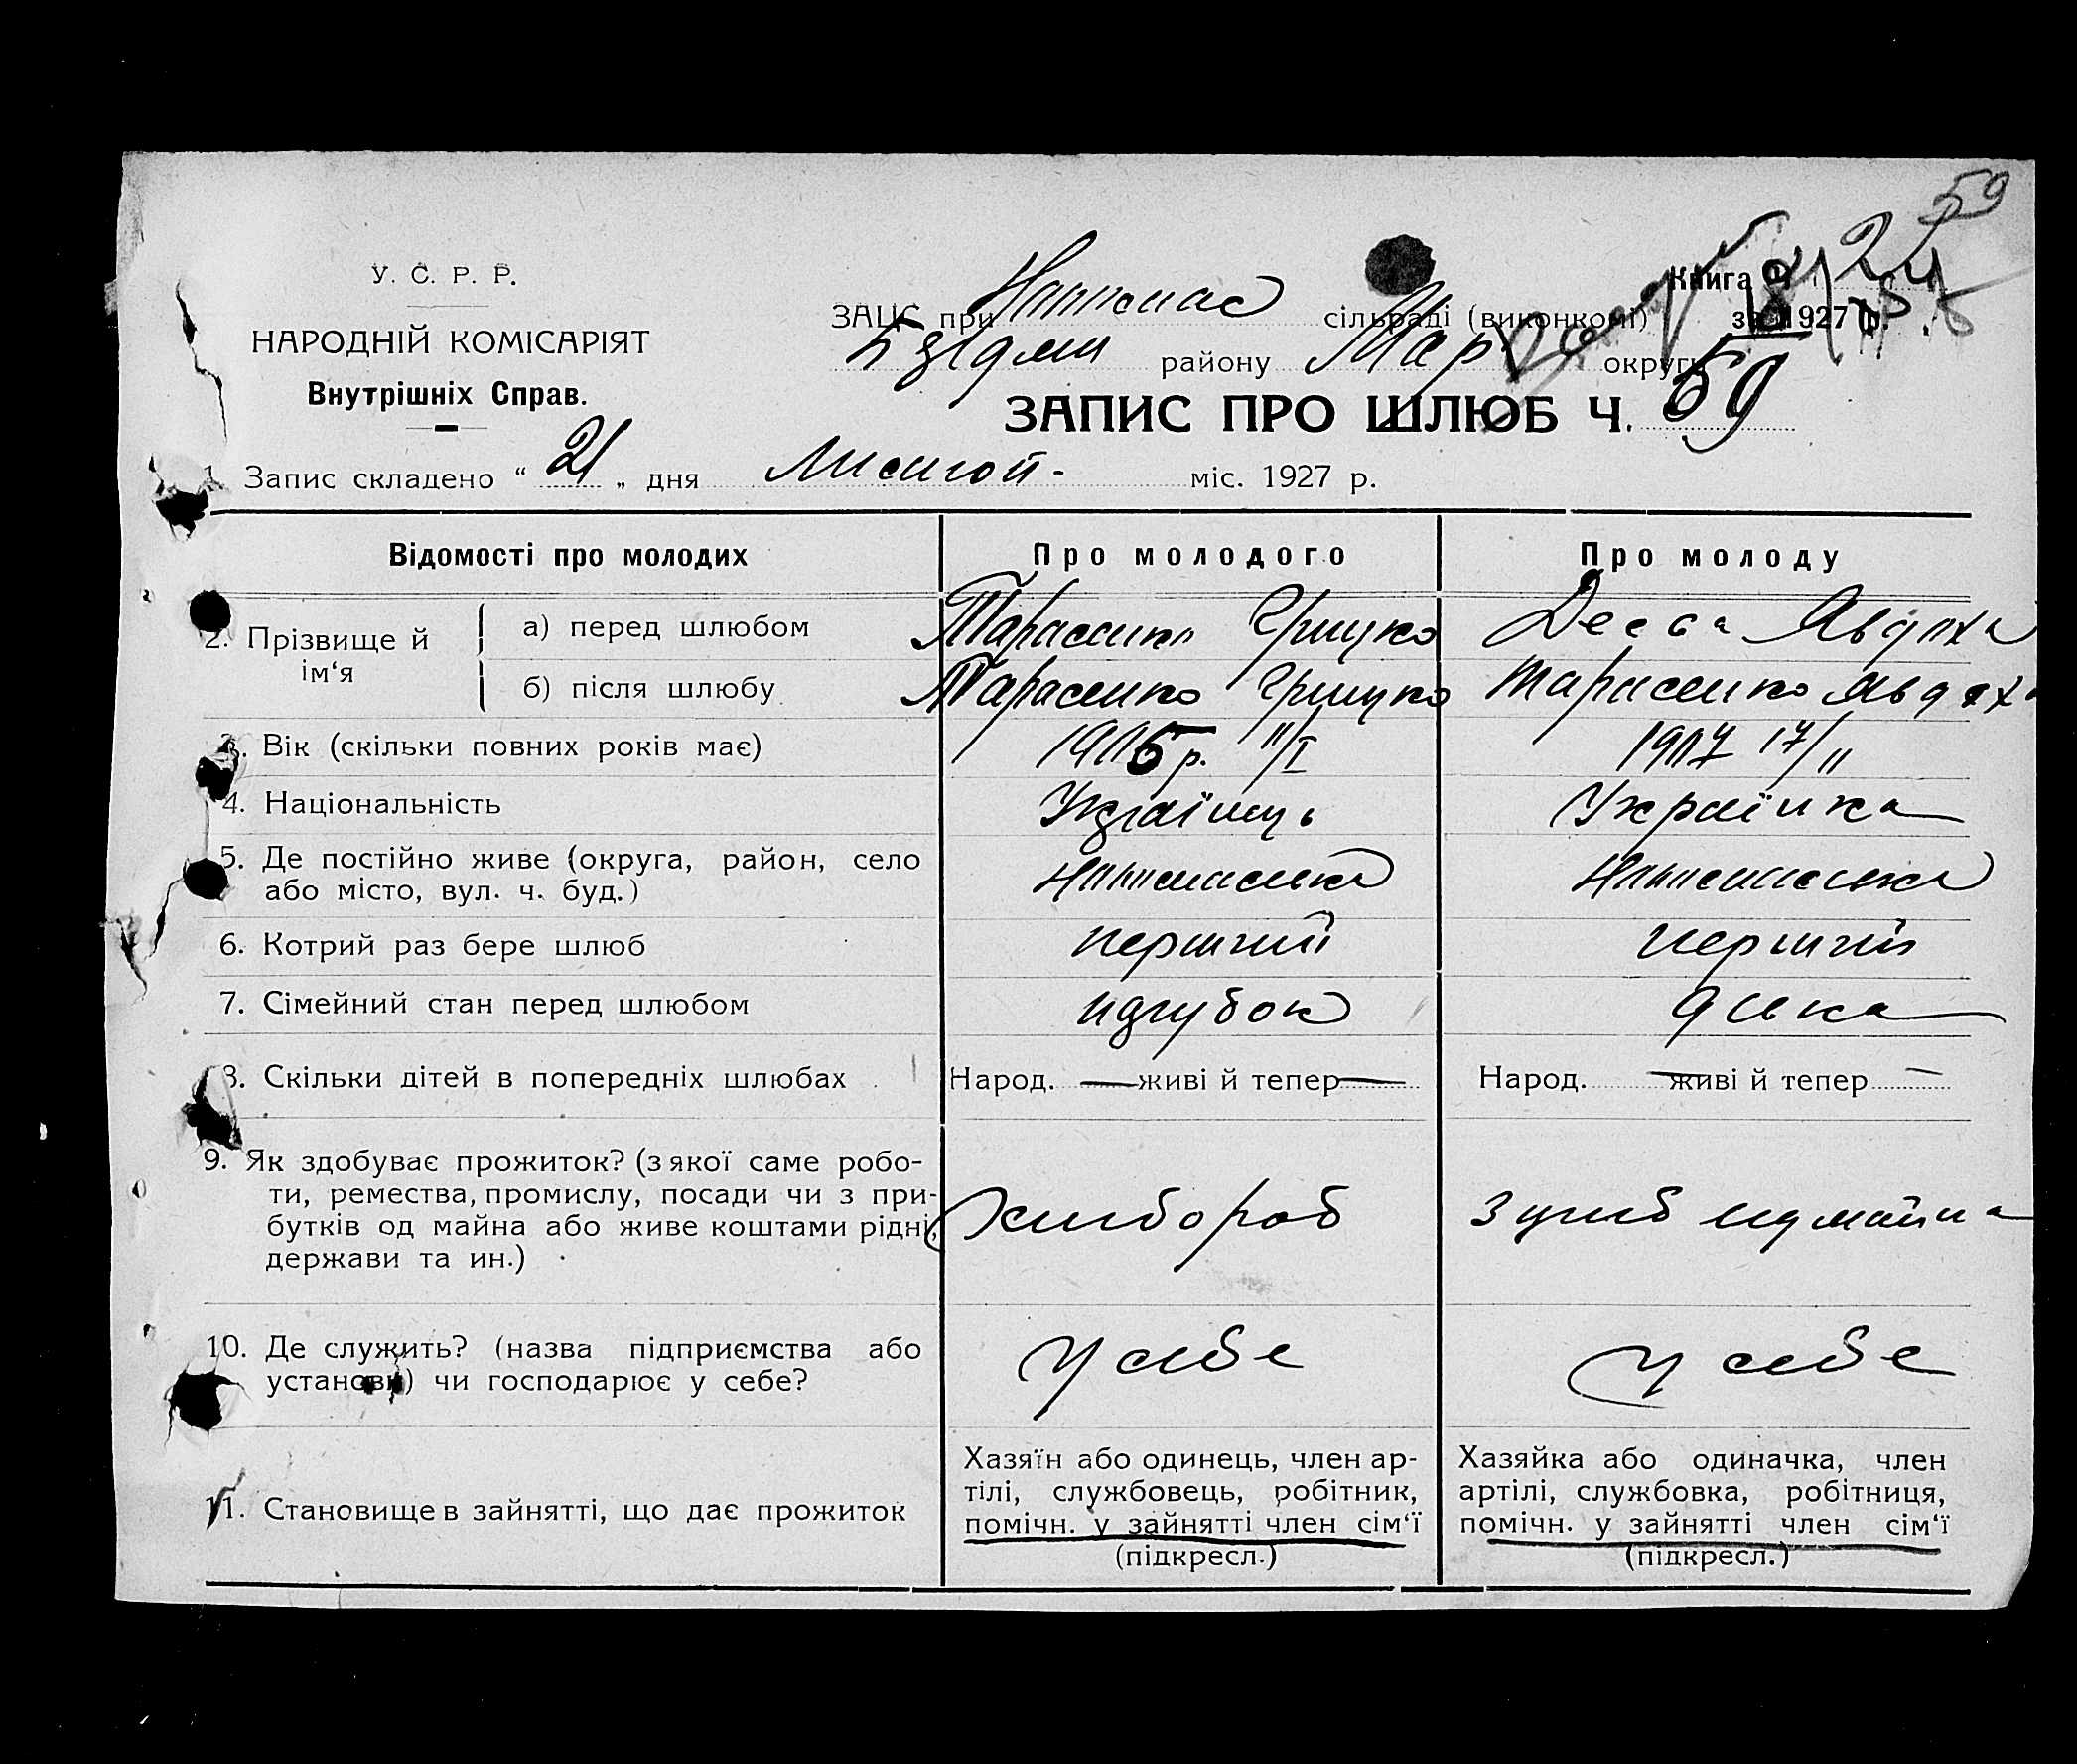 59
У. С. Р. Р.
НАРОДНІЙ КОМІСАРІЯТ
Внутрішніх Справ.
Книга Ч.
ЗАЦС при сільраді (виконкомі) за 1927 р.
району Мар округи
ЗАПИС ПРО ШЛЮБ Ч. 59
1. Запис складено “ 21 „ дня Листоп- міс. 1927 р.
Відомості про молодих Про молодого Про молоду
2. Прізвище й ім‘я
а) перед шлюбом Тарасенко Грицко Десса Явдоха
б) після шлюбу Тарасенко Грицко Тарасенко Явдоха
3. Вік (скільки повних років має) 1906 р. 11/I 1907 17/11
4. Національність Українець Українка
5. Де постійно живе (округа, район, село
або місто, вул. ч. буд.)
6. Котрий раз бере шлюб перший перший
7. Сімейний стан перед шлюбом парубок дівка
8. Скільки дітей в попередніх шлюбах Народ. — живі й тепер — Народ. — живі й тепер —
9. Як здобуває прожиток? (з якої саме робо-
ти, ремества, промислу, посади чи з при-
бутків од майна або живе коштами рідні,
держави та ин.)
Хлібороб
10. Де служить? (назва підприємства або
установи) чи господарює у себе?
у себе у себе
11. Становище в зайнятті, що дає прожиток
Хазяїн або одинець, член ар-
тілі, службовець, робітник,
помічн. у зайнятті член сім‘ї
(підкресл.)
Хазяйка або одиначка, член
артілі, службовка, робітниця,
помічн. у зайнятті член сім‘ї
(підкресл.)